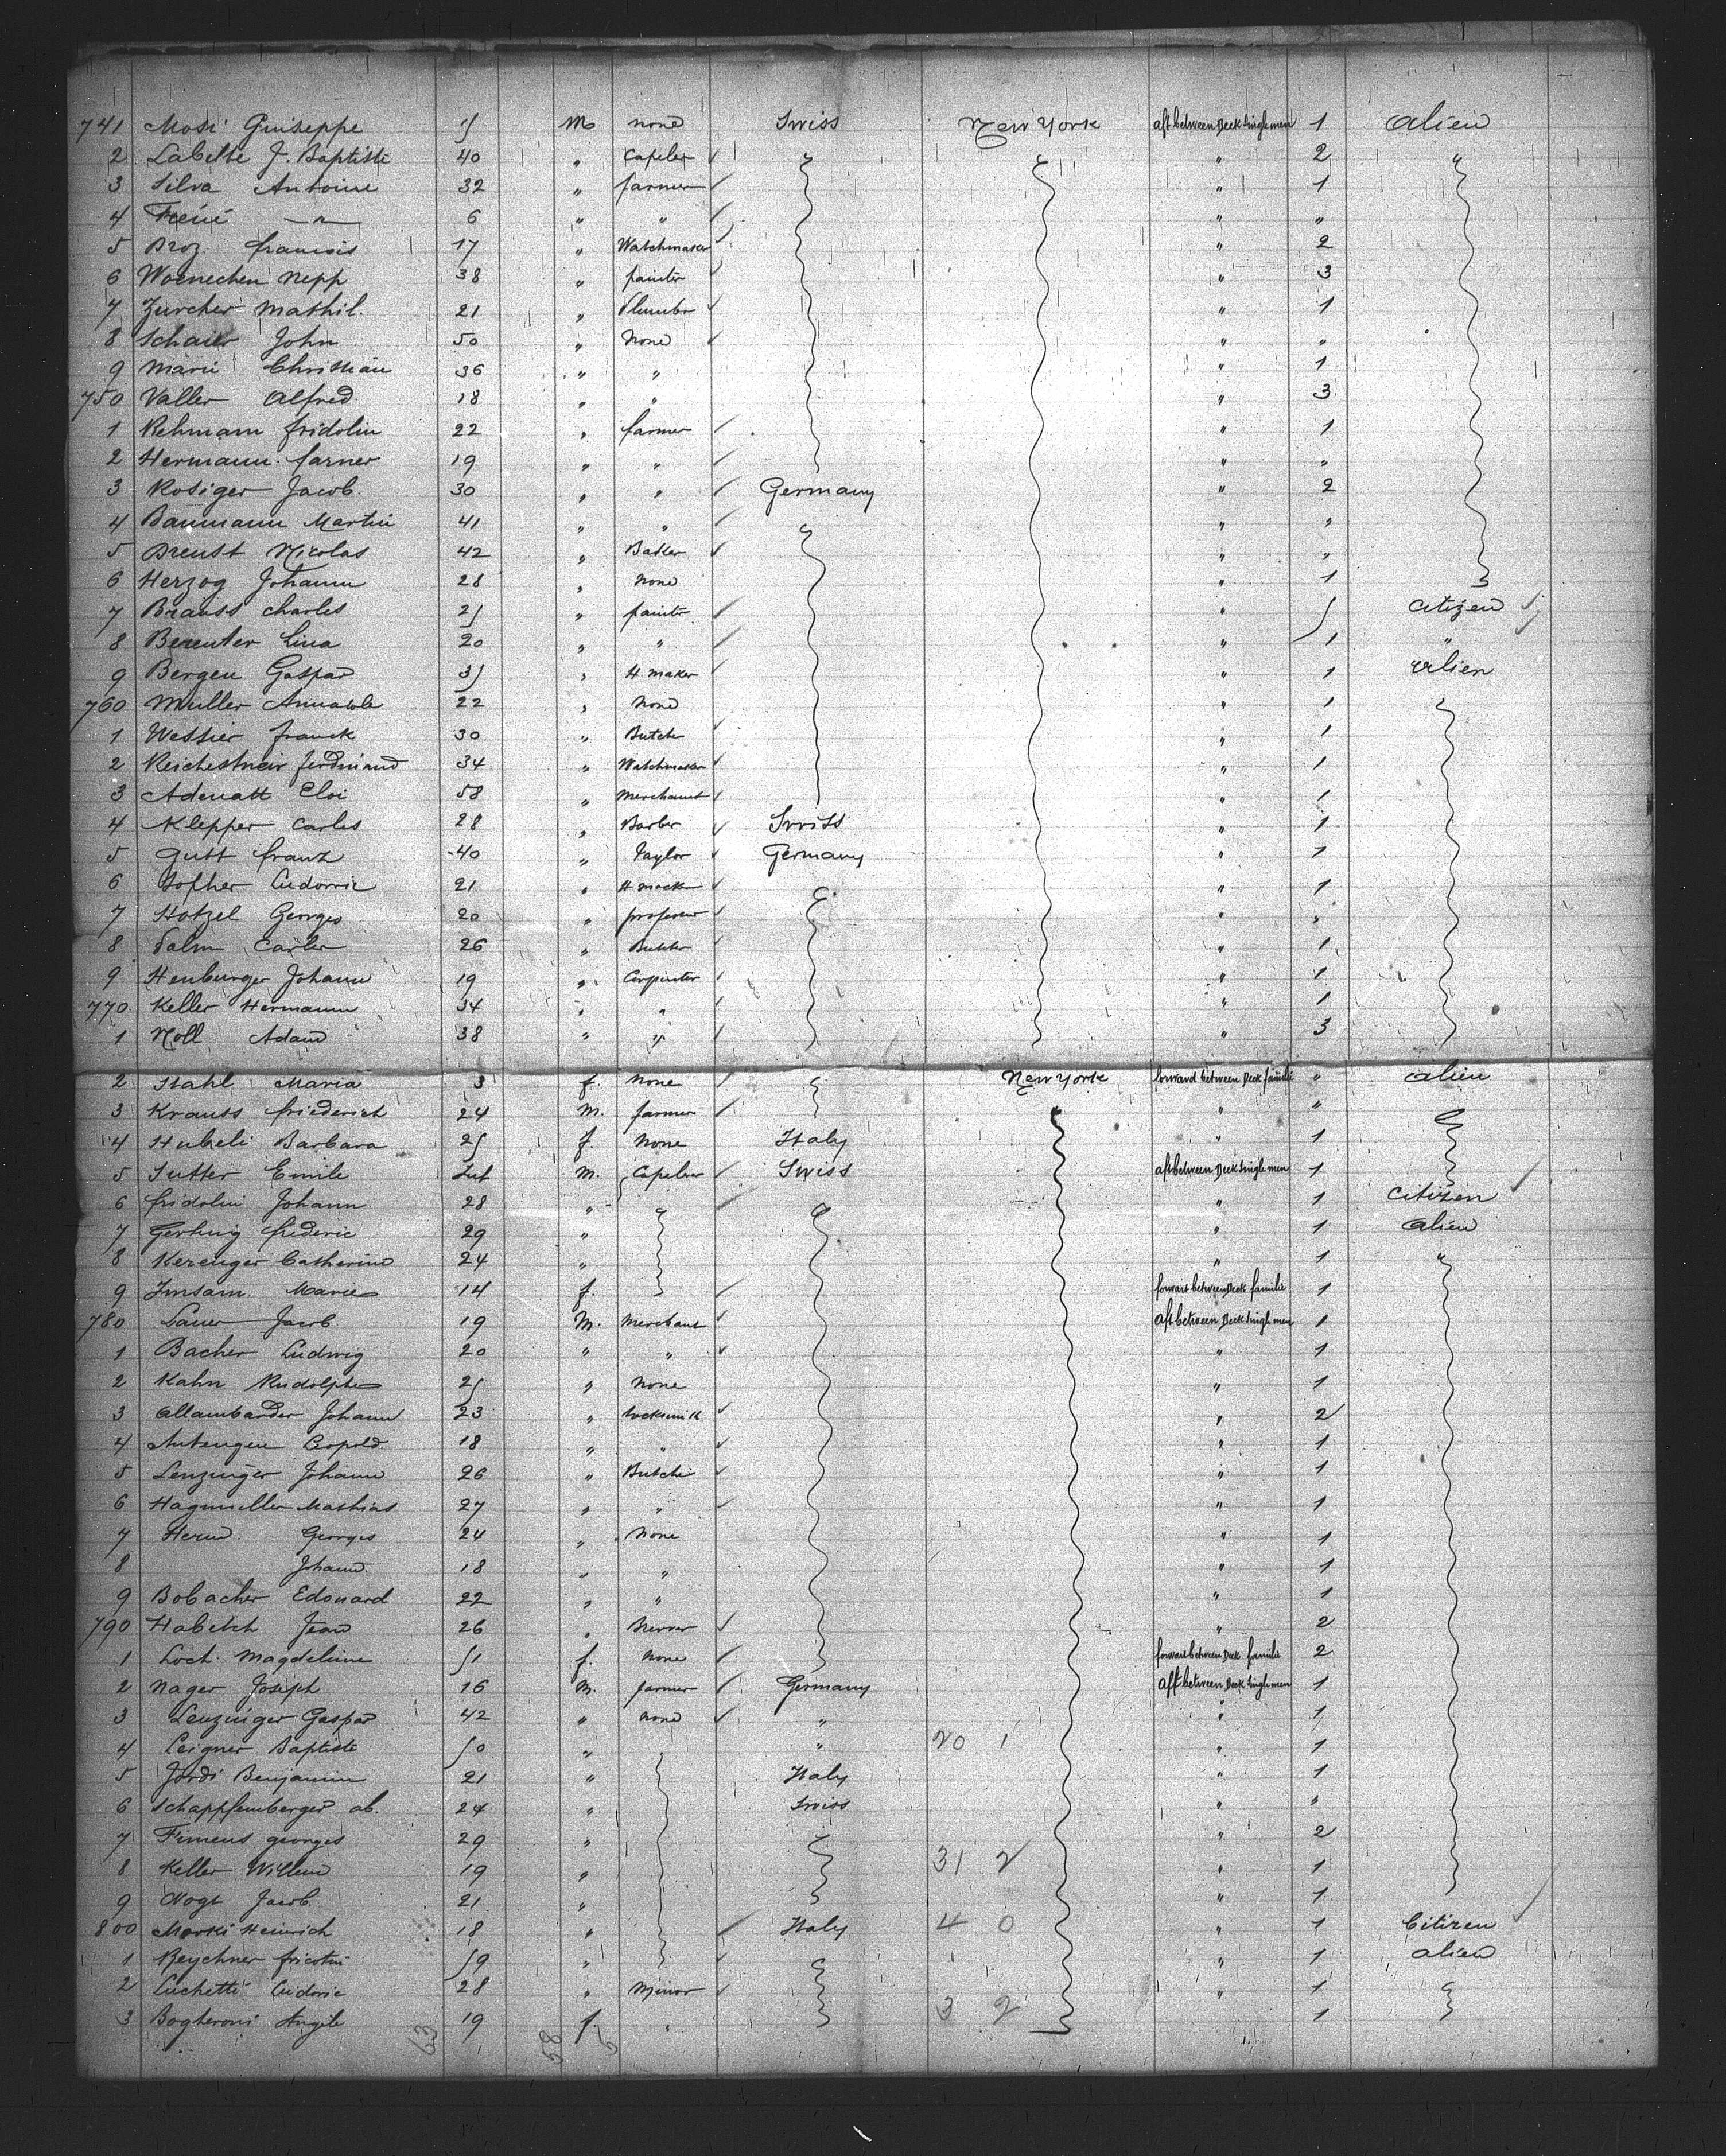 741 Mosi Guiseppe M none Swiss New York aft between Deck Single men 1 alien
2 Labelle J. Baptiste 40 " Capeler " 2 "
3 Silva Antoine 32 " farmer " 1
4 6 " " " "
5 Broz francois 17 " Watchmaker " 2
6 Woenechen Nepp 38 " painter " 3
7 Zurcher Mathil. 21 " Plumber " 1
8 Schaier John 50 " None " "
9 Marie Christian 36 " " " 1
750 Valler Alfred 18 " " " 3
1 Rehmann fridolin 22 " farmer " 1
2 Hermann farner 19 " " " "
3 Rosiger Jacob. 30 " " Germany " 2
4 Baumann Martin 41 " " " "
5 Breust Nicolas 42 " Baker " "
6 Herzog Johann 28 " None " 1
7 Brauss Charles 25 " painter " Citizen
8 Bereuter Lina 20 " " " 1 "
9 Bergen Gaspard 35 " H. maker " 1 Alien
760 Muller 22 " None " 1
1 Wessier franck 30 " Butcher " 1
2 ferdinand 34 " Watchmaker " 1
3 Adenatt Eloi 58 " Merchant " 1
4 Klepper Carles 28 " Barber Swiss " 1
5 Gutt franz 40 " Taylor Germany " 1
6 Sopher Ludovic 21 " " 1
7 Hotzel Georges 20 " professeur " "
8 Carler 26 " " 1
9 Henburger Johann 19 " Carpenter " 1
770 Keller Hermann 34 " " " 1
1 Noll Adam 38 " " " 3
2 Stahl Maria 3 f. None New York forward between Deck familie " alien
3 Krauss friederich 24 M. farmer " "
4 Hubeli Barbara 25 f. None Italy " 1
5 Sutter Emile M. Capeler Swiss aft between Deck Single men 1
6 fridolin Johann 28 " " 1 Citizen
7 Gerhwig frederic 29 " " 1 Alien
8 Kerenger Catherine 24 " " 1 "
9 Imsam. Marie 14 f. forward between Deck familie 1
780 Lauer Jacob. 19 M. Merchant aft between Deck Single men 1
1 Bacher Ludwig 20 " " " 1
2 Kahn Rudolphe 25 " None " 1
3 Allambarder Johann 23 " locksmith " 2
4 Antengen Leopold 18 " " " 1
5 Lenzinger Johann 26 " Butcher " 1
6 Hagmuller Mathias 27 " " " 1
7 Georges 24 " None " 1
8 Johann. 18 " " " 1
9 Bobacher Edouard 22 " " " 1
790 Habetch Jean 26 " " 2
1 Loch. Magdeleine 51 f. None forward between Deck familie 2
2 Nager Joseph 16 M. farmer Germany aft between Deck Single men 1
3 Lenzinger Gaspard 42 " None " " 1
4 Leigner Baptiste 50 " " 20 1 " 1
5 Jordi Benjamin 21 " Italy " 1
6 Schappfemberger ab. 24 " Swiss " "
7 Fimeus georges 29 " " 2
8 Keller Willem 19 " 31 2 " 1
9 Vogt Jacob. 21 " " 1
800 Morski Heinrich 18 " Italy 4 0 " 1 Citizen
1 Reychner 59 " " 1 alien
2 Luchetti Ludovic 28 " Minor " 1
3 Bogheroni Angele 19 f. " 3 2 1
63 58 5